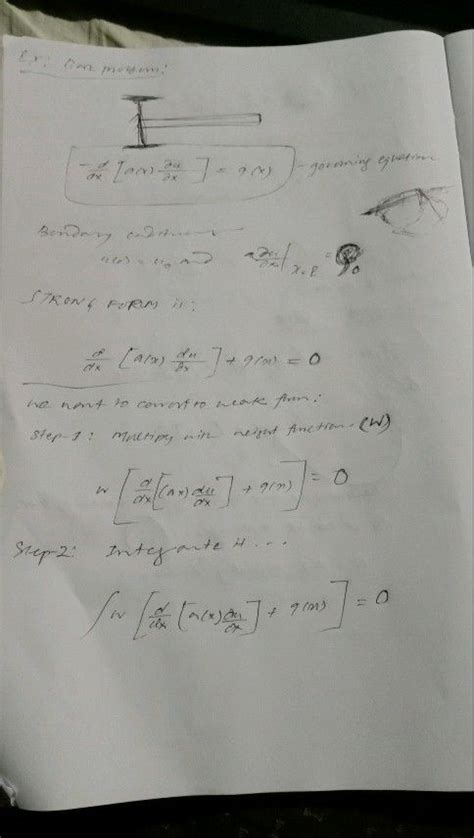 Ex: problem:
-d/dx [a(x) ∂u/∂x] = q(x) - governing equation
Boundary conditions
u(0) = u₀ and a ∂u/∂x |x=l = Q₀
STRONG FORM is:
d/dx [a(x) du/dx] + q(x) = 0
we want to convert to weak form:
Step-1: Multiply with weight function (W)
w [d/dx [(ax) du/dx] + q(x)] = 0
Step-2: Integrate it...
∫w [d/dx [a(x) du/dx] + q(x)] = 0